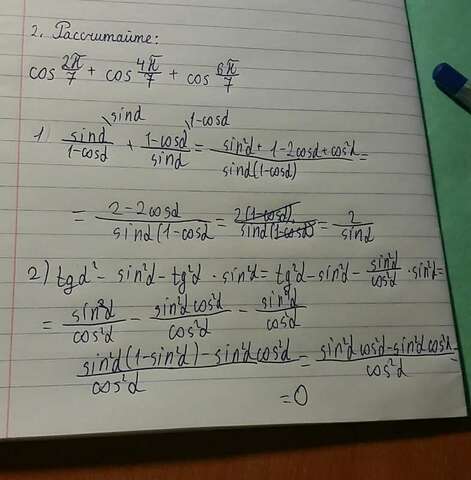 2. Рассчитайте:
cos 2π/7 + cos 4π/7 + cos 6π/7
1) sinα/(1-cosα) \sinα + (1-cosα)/sinα \1-cosα = (sin²α + 1-2cosα + cos²α)/(sinα(1-cosα)) =
= (2-2cosα)/(sinα(1-cosα) = 2(1-cosα)/(sinα(1-cosα)) = 2/sinα
2) tgα² - sin²α - tg²α · sin²α = tg²α - sin²α - sin²α/cos²α · sin²α =
= sin²α/cos²α - sin²α cos²α/cos²α - sin⁴α/cos²α
(sin²α(1-sin²α) - sin²α cos²α)/cos²α = (sin²α cos²α - sin²α cos²α)/cos²α =
= 0